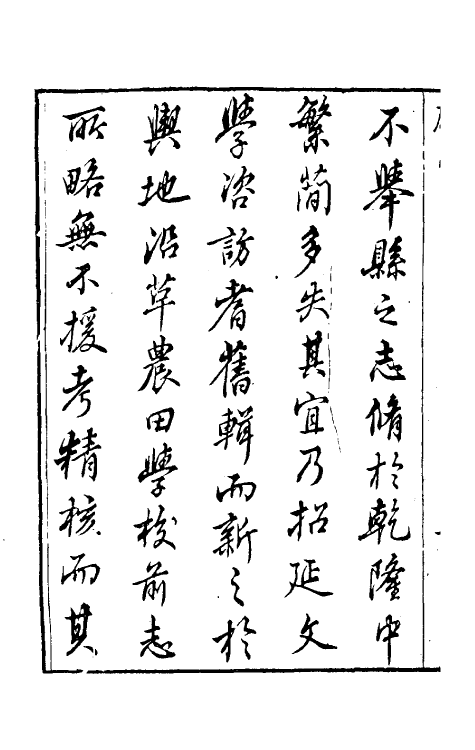 不舉縣之志脩於乾隆中
繁簡多失其宜乃招延文
學諮訪耆舊輯而新之於
輿地沿革農田學校前志
所略無不援考精核而其